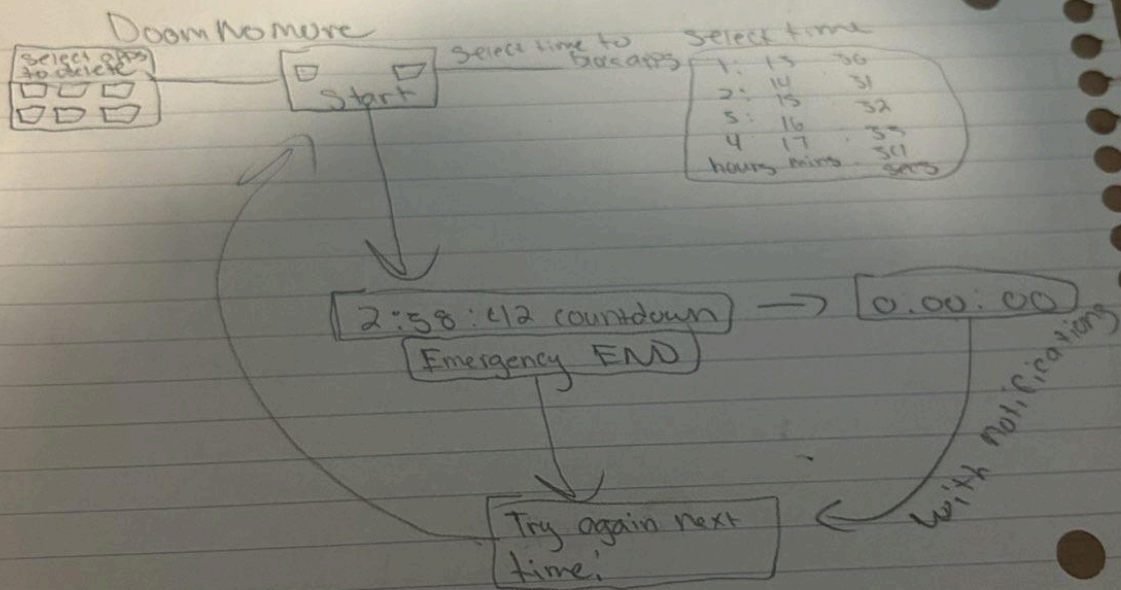 Doom no more
Select apps
to delete
Start
Select time to
Select time
1: 13 30
2: 14 31
3: 15 32
4 17 33
16
34
hours mins secs
2:58:42 countdown
0:00:00
Emergency END
with notifications
Try again next
time!